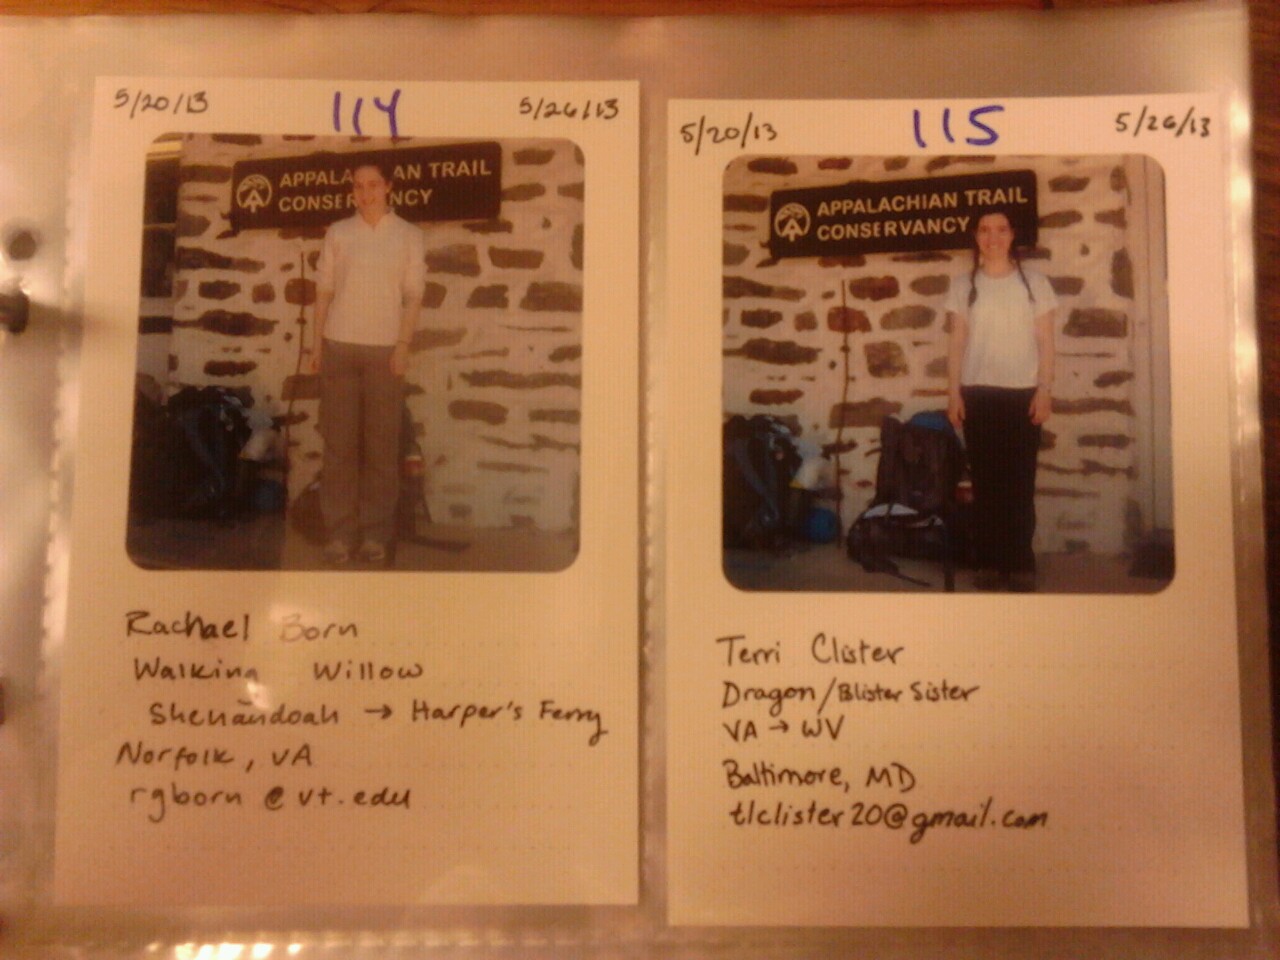 5/20/13 114 5/26/13
APPALACHIAN TRAIL
CONSERVANCY
Rachael Born
Walking Willow
Shenandoah → Harper's Ferry
Norfolk, VA
rgborn @ vt.edu
5/20/13 115 5/26/13
APPALACHIAN TRAIL
CONSERVANCY
Terri Clister
Dragon/Blister Sister
VA → WV
Baltimore, MD
tlclister20@gmail.com